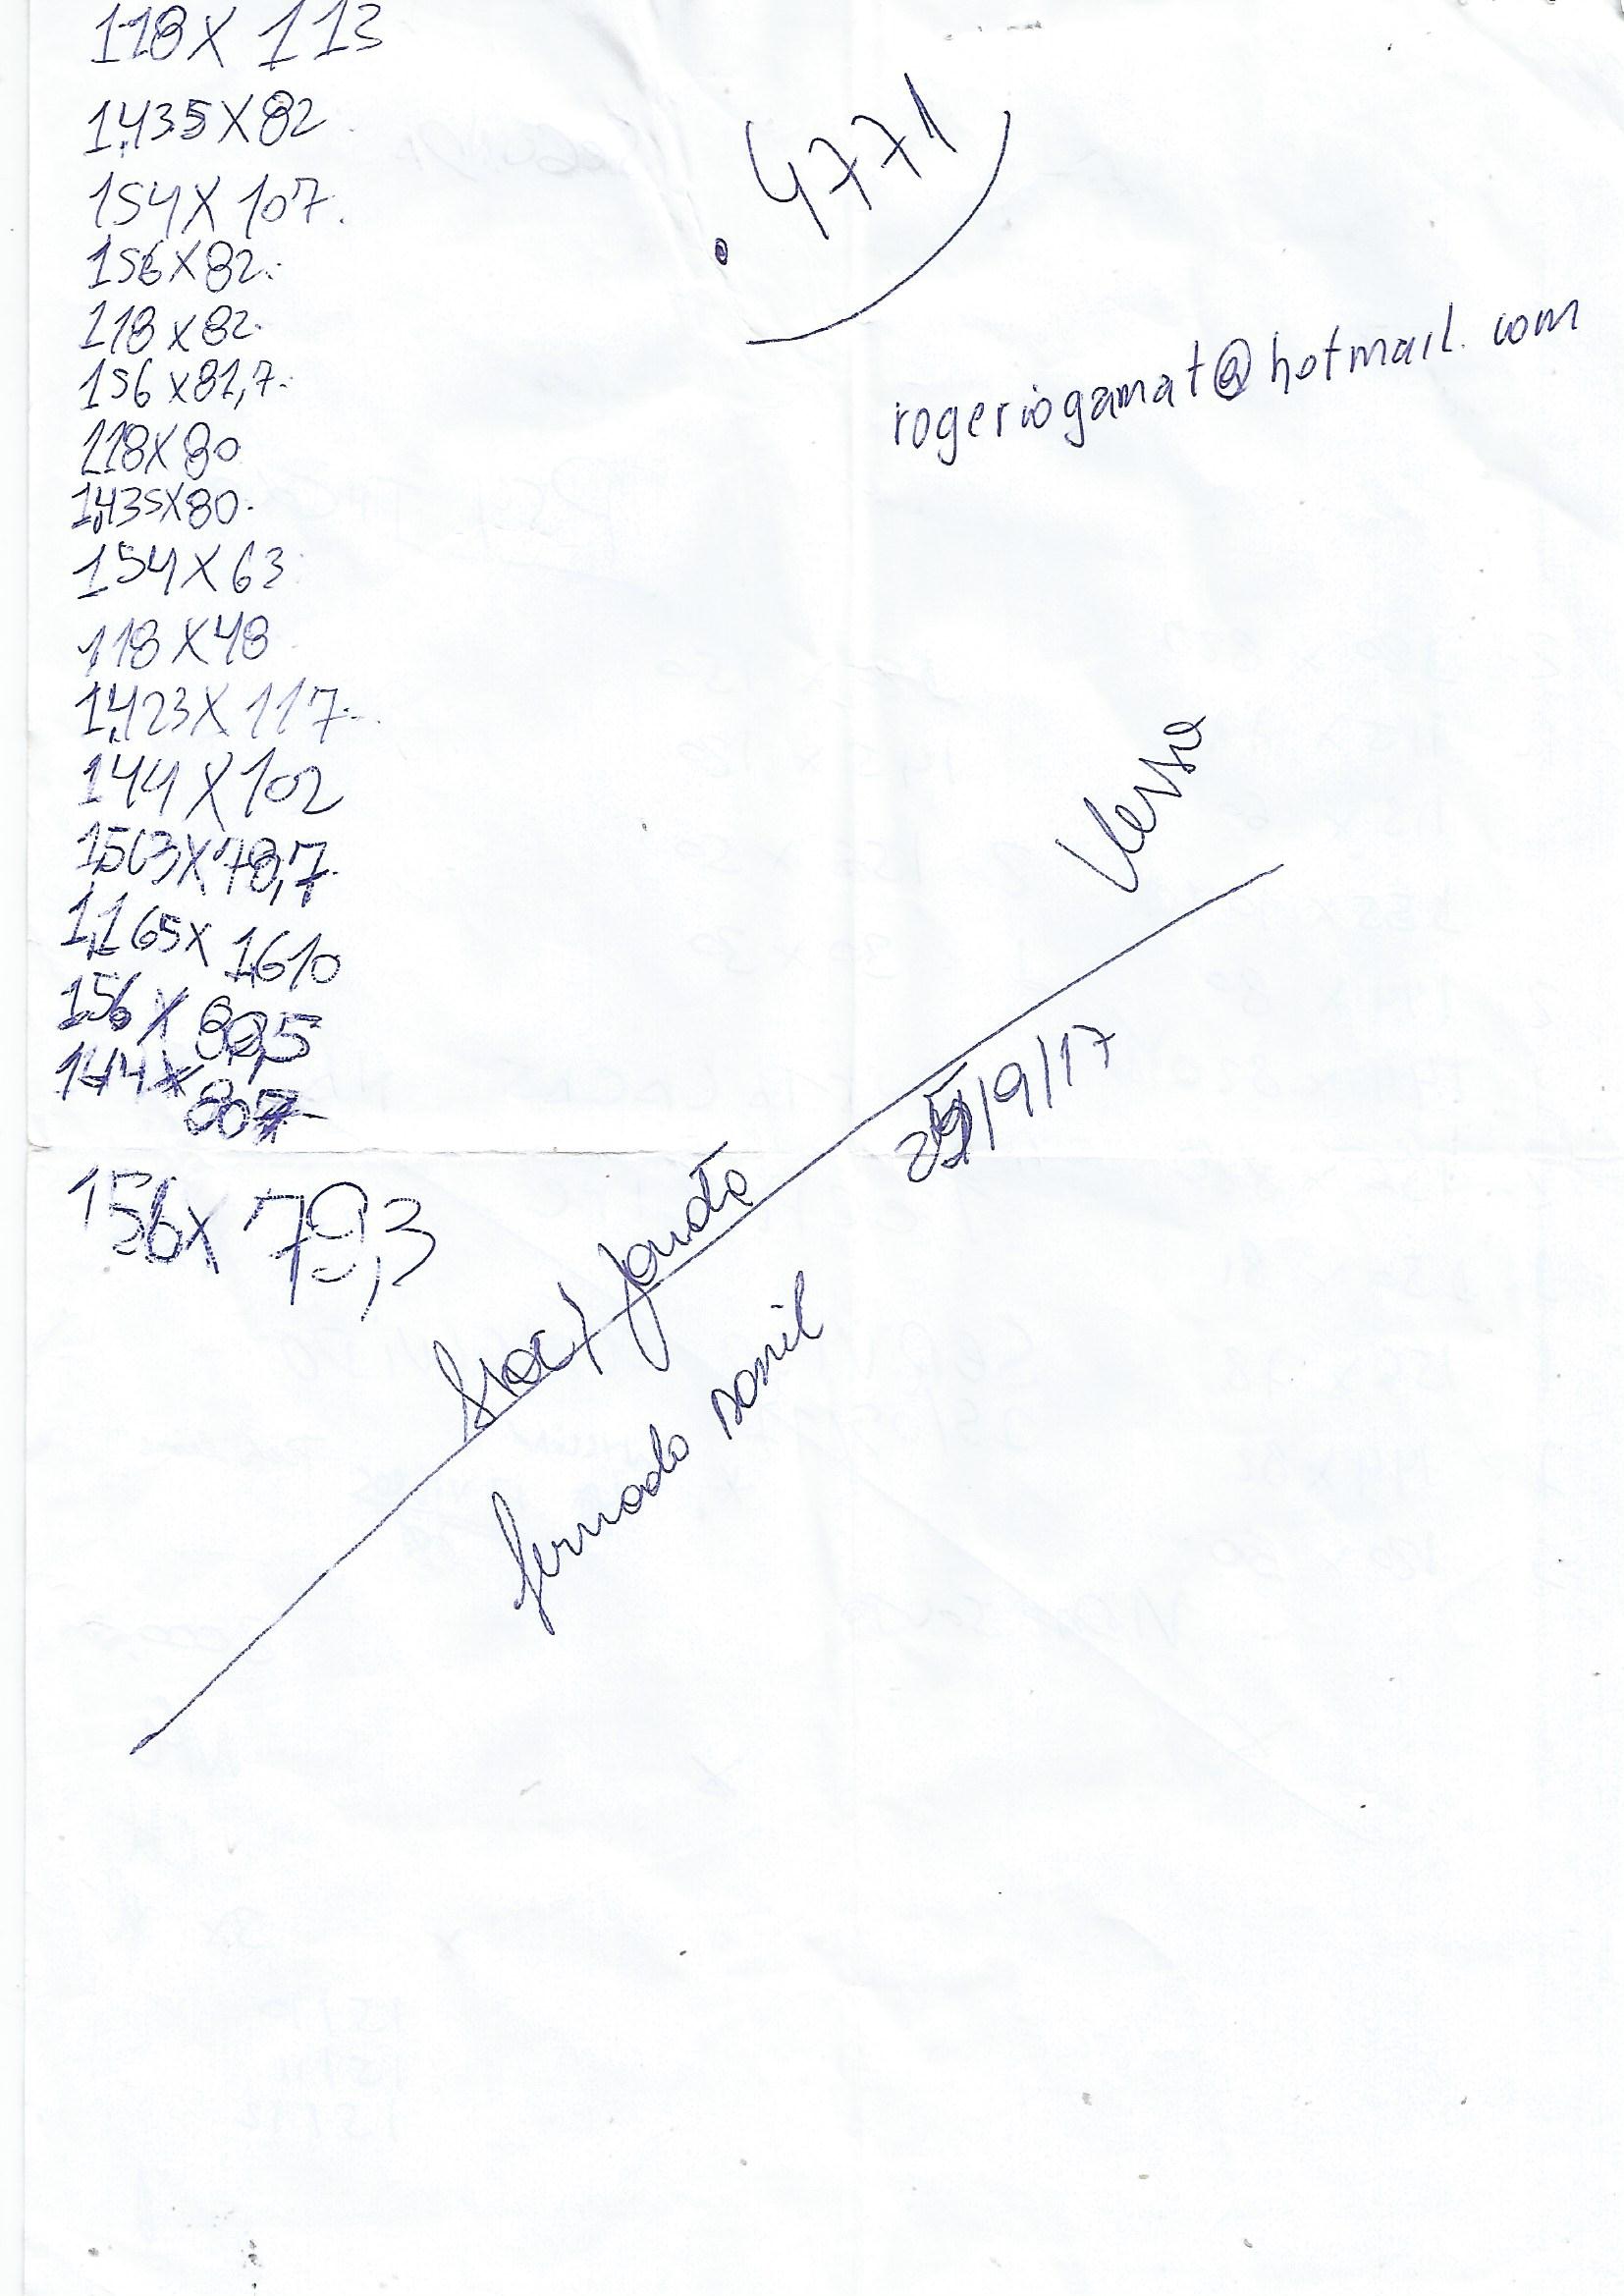 118 X 113
1,435 X 82
154 X 107.
156 X 82.
118 X 82.
156 X 81,7.
118 X 80
1,435 X 80.
154 X 63
118 X 48
1,423 X 117.
144 X 102
1,563 X 78,7.
1,165 X 1,610
156 X 82,5
144 X 80
156 X 79,3
. 4771
rogeriogamat@hotmail.com
Verso
/9/17